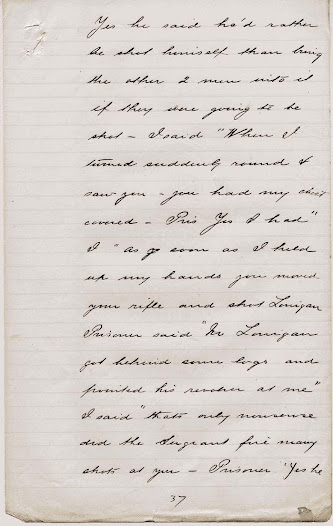 Yes he said he'd rather
be shot himself than bring
the other 2 men into it
if they were going to be
shot - I said "When I
turned suddenly round &
saw you - you had my chest
covered - Pris Yes I had"
I "as soon as I held
up my hands you moved
your rifle and shot Lonigan
Prisoner said "No Lonigan
got behind some logs and
pointed his revolver at me"
I said "thats only nonsense
did the Sergeant fire many
shots at you - Prisoner "Yes he
37